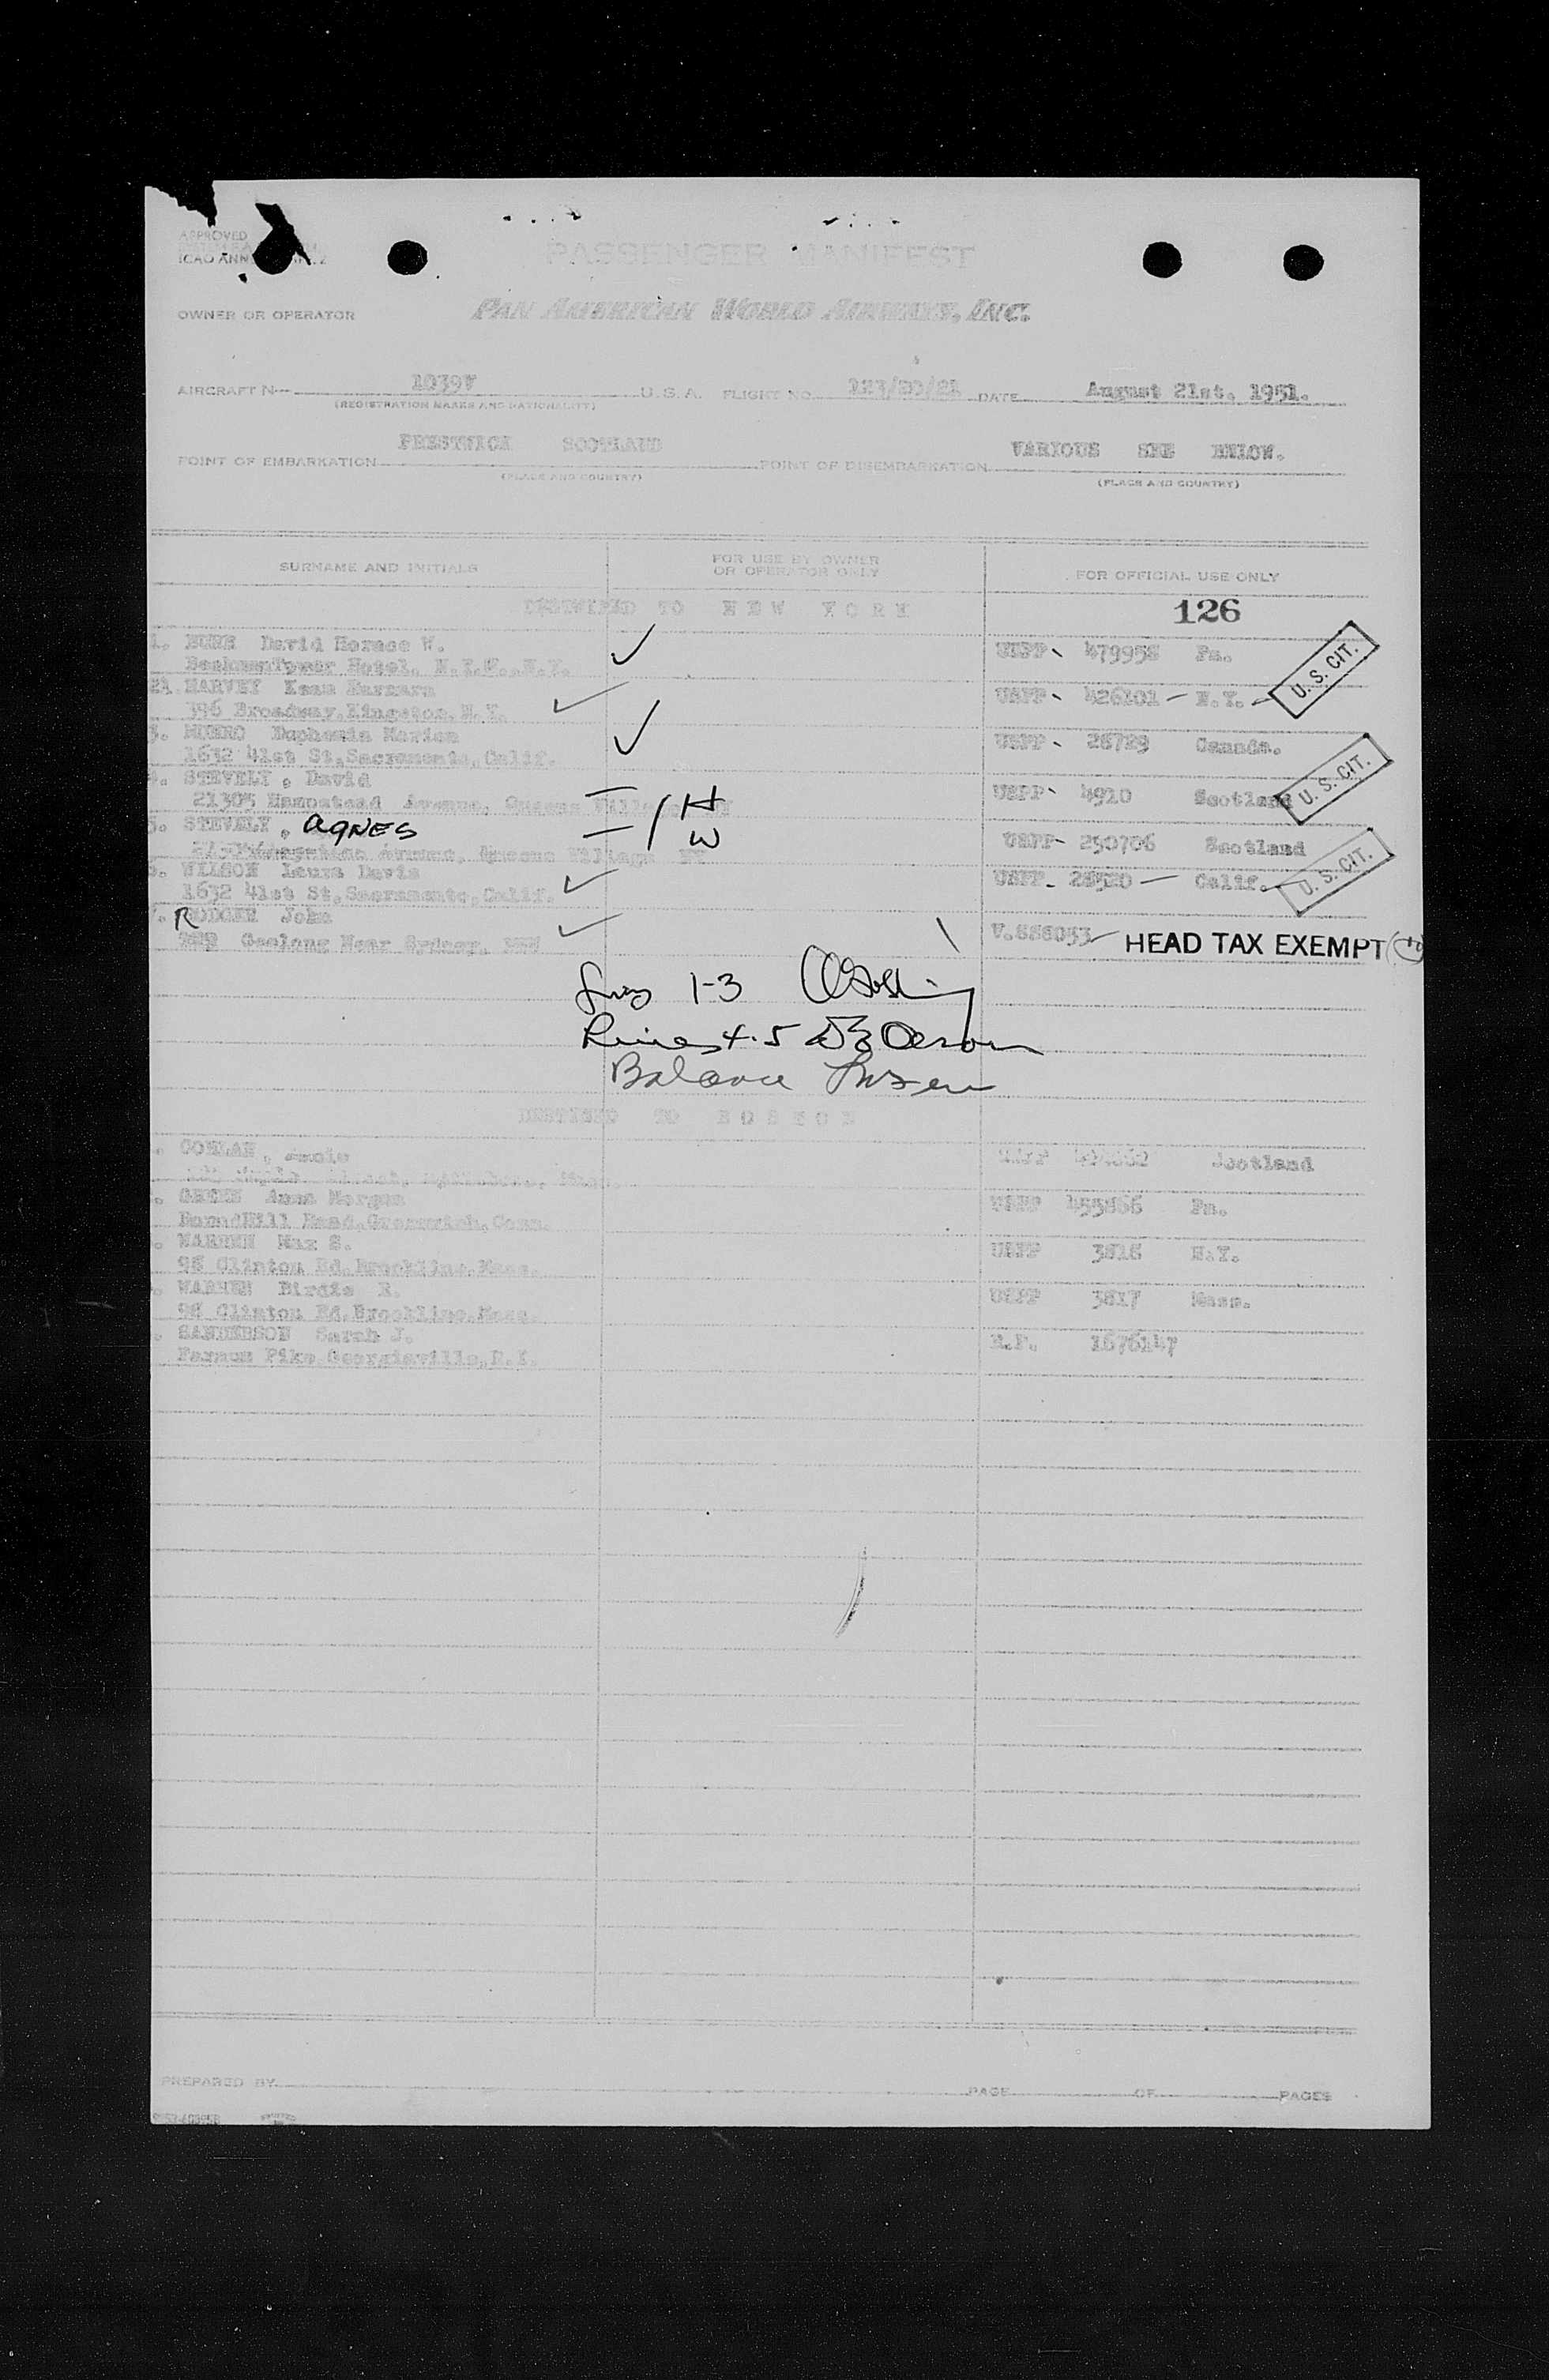 APPROVED
ICAO ANN
PASSENGER MANIFEST
OWNER OR OPERATOR PAN AMERICAN WORLD AIRWAYS, INC.
AIRCRAFT N 1039V U.S.A. FLIGHT NO. 123/20/21 DATE August 21st, 1951.
(REGISTRATION MARKS AND NATIONALITY)
POINT OF EMBARKATION PRESTWICK SCOTLAND POINT OF DISEMBARKATION VARIOUS SEE BELOW.
(PLACE AND COUNTRY) (PLACE AND COUNTRY)
SURNAME AND INITIALS FOR USE BY OWNER OR OPERATOR ONLY FOR OFFICIAL USE ONLY
DESTINED TO NEW YORK 126
1. David Horace W. USPP 479958 Pa.
BeekmanTower Hotel, N.Y.C.,N.Y.
U.S. CIT.
2. HARVEY USPP 426101 N.Y.
396 Broadway,Kingston,N.Y.
3. MUNRO Marion USPP 26729 Canada.
1632 41st St,Sacramento,Calif.
U.S. CIT.
4. STEVELY, David USPP 4910 Scotland
21305 Hempstead Avenue, Queens Village NY H
5. STEVELY, AGNES W USPP 290706 Scotland
Avenue, Queens Village NY
6. WILSON Laura Davis USPP Calif. U.S. CIT.
1632 41st St,Sacramento,Calif.
7. R John HEAD TAX EXEMPT
Geelong Near Sydney,
1-3
Lines 4-5
Balance
DESTINED TO BOSTON
Annie USPP Scotland
GREEN Anna Morgan USPP 455866 Pa.
RoundHill Road,Greenwich,Conn.
Max S. USPP 3816 N.Y.
Clinton Rd,Brookline,Mass.
Birdie R. USPP 3817 Mass.
Clinton Rd,Brookline,Mass.
SANDERSON Sarah J. R.P. 1676147
Farnum Pike,Georgiaville,R.I.
PREPARED BY PAGE OF PAGES